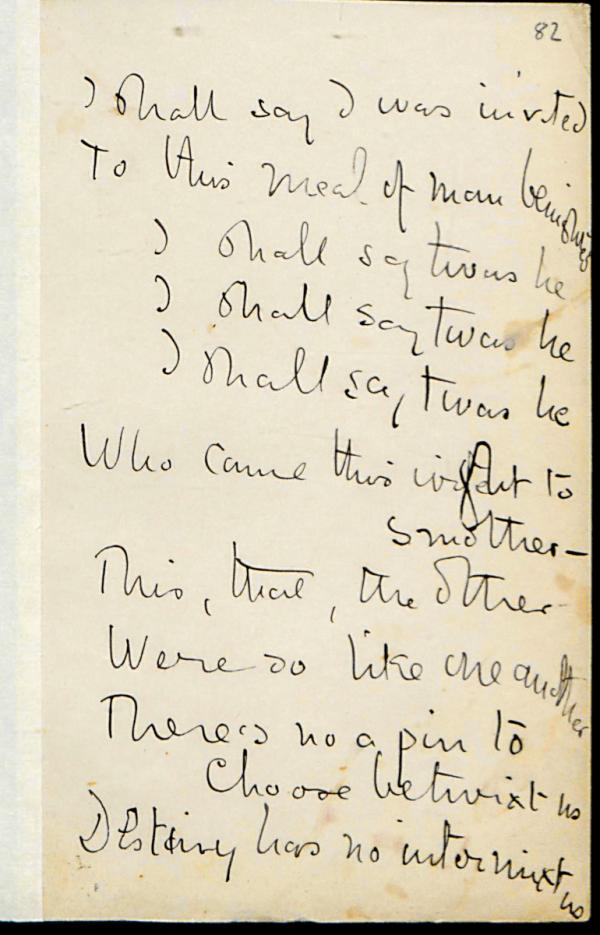 82
I shall say I was invited
To this meal of man
I shall say twas he
I shall say twas he
I shall say twas he
Who came this to
smother—
This, that, the other
Were so like one another
There's no a pin to
choose betwixt us
Destiny has so intermixt us